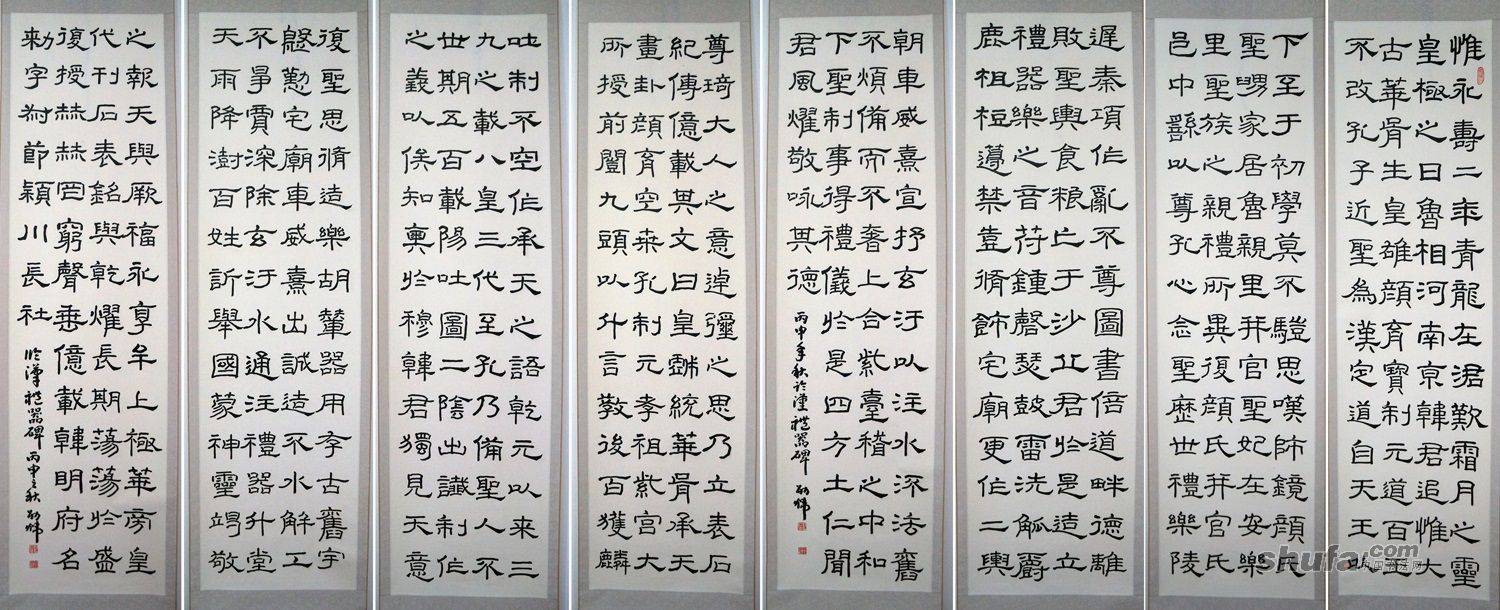 惟永壽二年青龍在涒歎霜月之靈
皇極之日魯相河南京韓君追惟大
古華胥生皇雄顏育寶制元道百王
不改孔子近聖為漢定道自天王以
下至于初學莫不驥思嘆師鏡顏氏
聖舅家居魯親里并官聖妃在安樂
里聖族之親禮所異復顏氏并官氏
邑中繇以尊孔心念聖歷世禮樂陵
遲秦項作亂不尊圖書倍道畔德離
敗聖輿食粮亡于沙丘君於是造立
禮器樂之音苻鍾磬瑟鼓雷洗觚爵
鹿柤梪籩禁壺脩飾宅廟更作二輿
朝車威熹宣抒玄汙以注水流法舊
不煩備而不奢上合紫臺稽之中和
下聖制事得禮儀於是四方土仁聞
君風燿敬咏其德
丙申年秋臨漢禮器碑
尊琦大人之意逴彌之思乃立表石
紀傳億載其文曰皇戲統華胥承天
畫卦顏育空桑孔制元孝祖紫宮大
所授前闓九頭以什言教後百獲麟
吐制不空作承天之語乾元以來三
九之載八皇三代至孔乃備聖人不
世期五百載陽吐圖二陰出讖制作
之義以俟知奧於穆韓君獨見天意
復聖思脩造樂胡輦器用存古舊宇
盤懃宅廟車威熹出誠造不水解工
不爭賈深除玄汙水通注禮器升堂
天雨降澍百姓訢舉國蒙神靈竭敬
之報天與厥福永享牟上極華旁皇
代刊石表銘與乾燿長期蕩蕩於盛
復授赫赫罔窮聲垂億載韓明府名
勑字叔節潁川長社
臨漢禮器碑丙申之秋
shufa.com